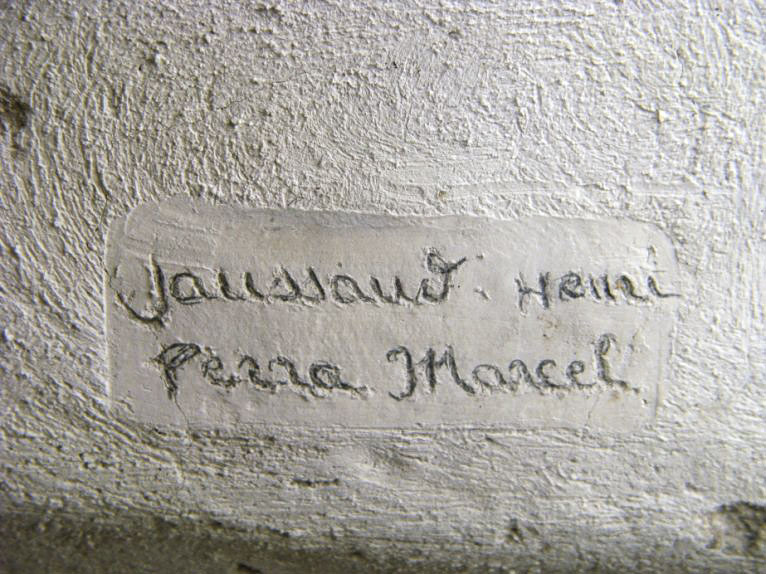 Jaussaud. Henri
Perra Marcel